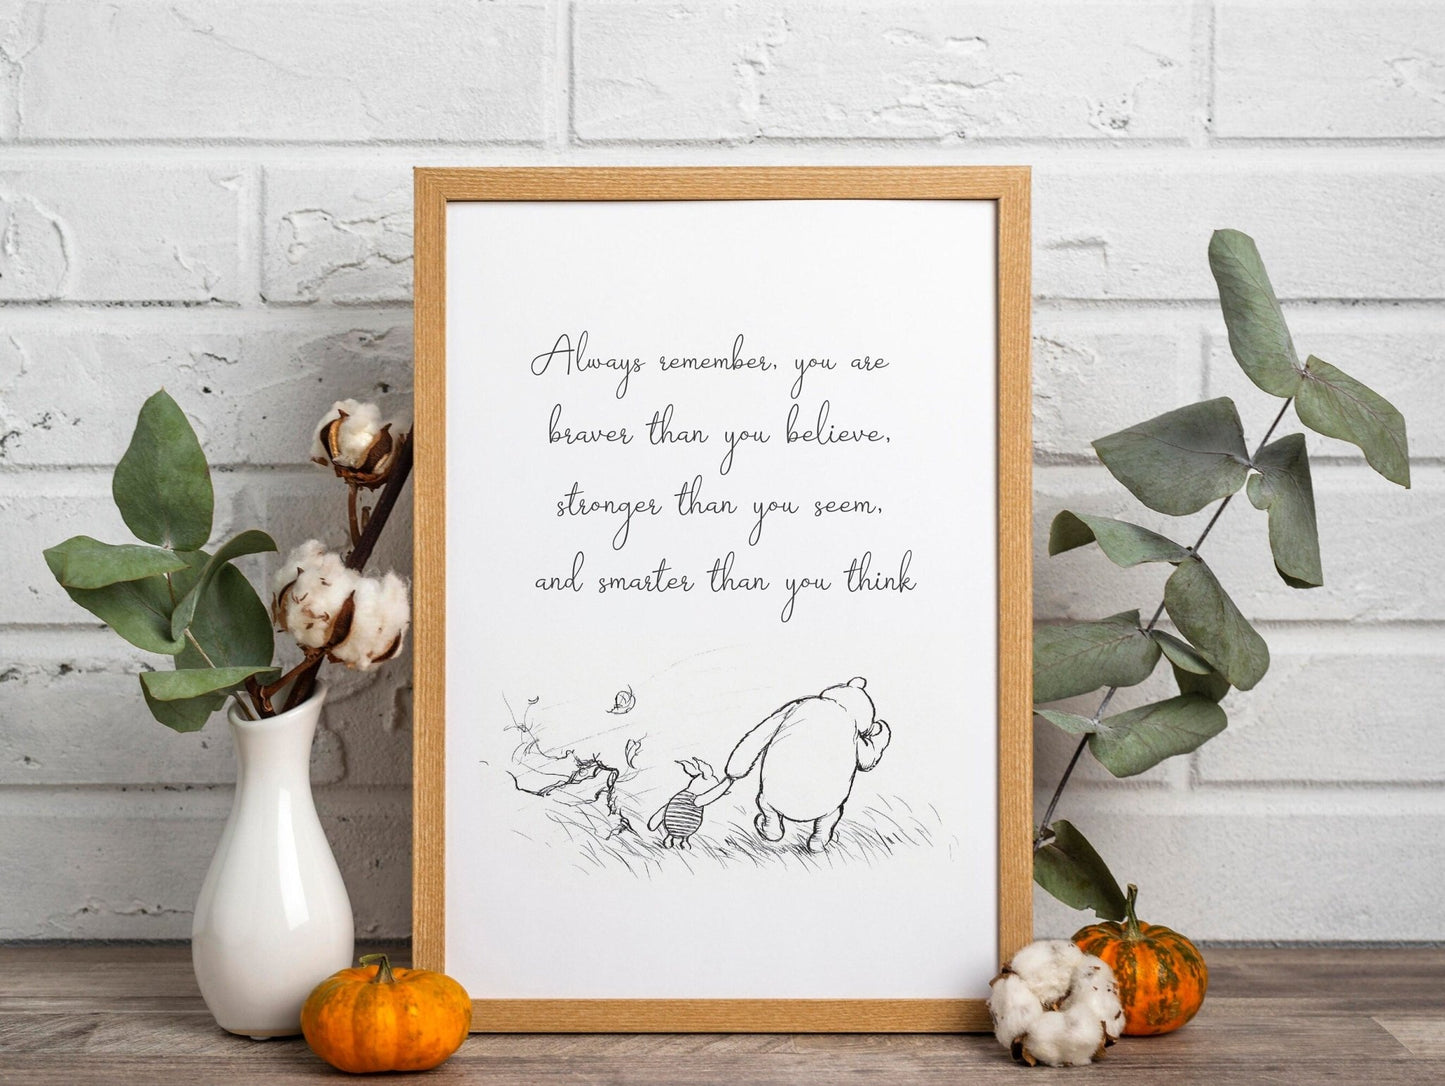 Always remember, you are
braver than you believe,
stronger than you seem,
and smarter than you think